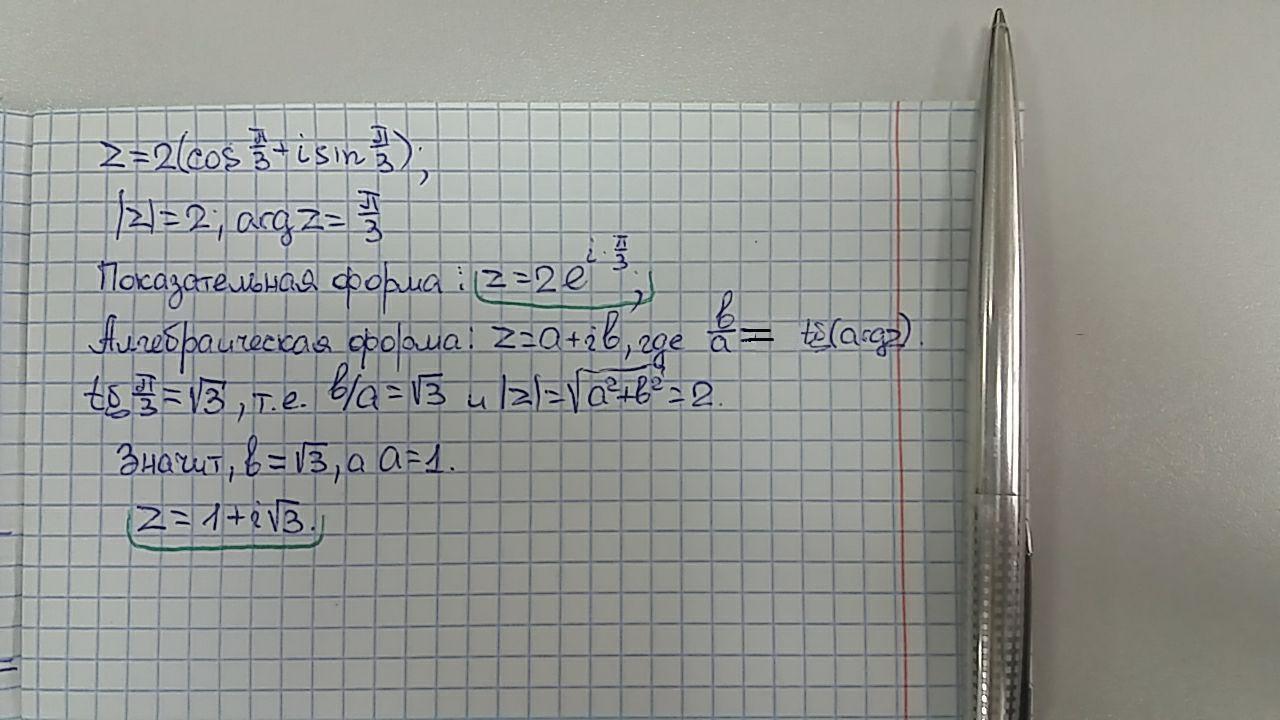 z=2(cos π/3+i sin π/3);
|z|=2; arg z= π/3
Показательная форма: z=2e^(i·π/3);
Алгебраическая форма: z=a+ib, где b/a = tg(arg z).
tg π/3=√3, т.е. b/a=√3 и |z|=√(a²+b²)=2.
Значит, b=√3, а a=1.
z=1+i√3.